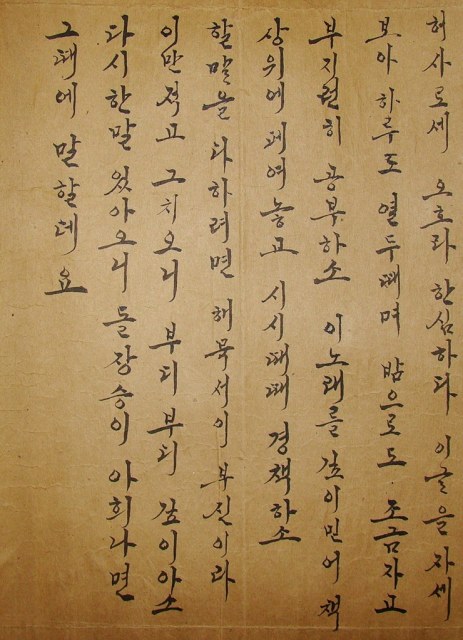 허사로세 오호라 한심하다 이글을 자세
보아 하루도 열두때며 밤으로도 조금자고
부지런히 공부하소 이노래를 깊이믿어 책
상위에 페여놓고 시시때때 경책하소
할말을 다하려면 해묵서이 부진이라
이만적고 그치오니 부디부디 깊이아소
다시한말 있아오니 돌장승이 아희나면
그때에 말할데요